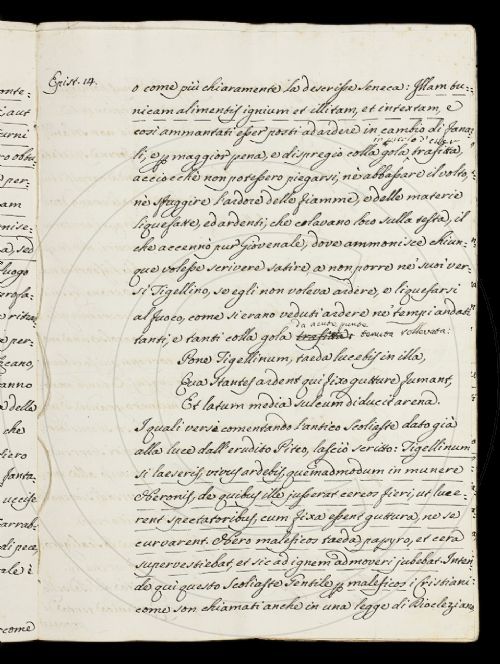 Epist. 14.
o come più chiaramente la descrisse Seneca: Illam tu-
nicam alimentis ignium et illitam, et intextam, e
così ammantati esser posti ad ardere in cambio di Fana-
li; e p maggior pena, e dispregio colla gola trafitta,
acciocchè non potessero piegarsi, nè abbassare il volto,
nè sfuggire l'ardore delle fiamme, e delle materie
liquefatte, ed ardenti, che colavano loro sulla testa, il
che accennò pur Giovenale, dove ammonisce chiun-
que volesse scrivere satire, a non porre ne' suoi ver-
si Tigellino, se egli non voleva ardere, e liquefarsi
al fuoco, come si erano veduti ardere ne' tempi andati
da acute punte
tanti, e tanti colla gola trafitta tenuta sollevata:
Pone Tigellinum, taeda lucebis in illa,
Qua stantes ardent qui fixo gutture fumant,
Et latum media sulcum diducit arena.
I quali versi comentando l'antico Scoliaste dato già
alla luce dall'erudito Piteo, lasciò scritto: Tigellinum
si laeseris, vivus ardebis, quemadmodum in munere
Neronis, de quibus ille jusserat cereos fieri, ut luce-
rent spectatoribus, cum fixa essent guttura, ne se
curvarent. Nero maleficos taeda, papyro, et cera
supervestiebat, et sic ad ignem admoveri jubebat. Inten-
de qui questo Scoliaste Gentile p maleficos i Cristiani
come son chiamati anche in una legge di Diocleziano